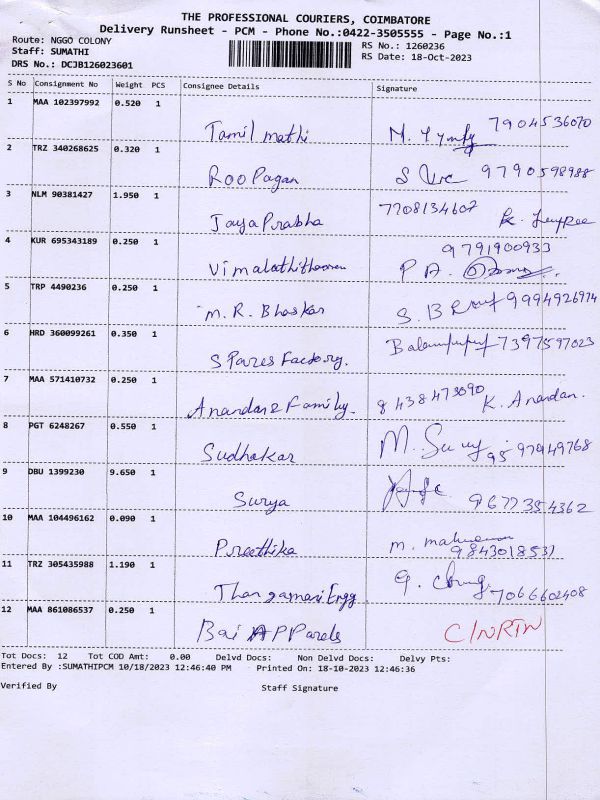 THE PROFESSIONAL COURIERS, COIMBATORE
Delivery Runsheet - PCM - Phone No.:0422-3505555 - Page No.:1
Route: NGGO COLONY
Staff: SUMATHI
DRS No.: DCJB126023601
RS No.: 1260236
RS Date: 18-Oct-2023
S No Consignment No Weight PCS Consignee Details Signature
1 MAA 102397992 0.520 1 Tamil mathi 7904536070
2 TRZ 340268625 0.320 1 Roo Pagan 9790598988
3 NLM 90381427 1.950 1 Jaya Prabha 7708134607
4 KUR 695343189 0.250 1 9791900933
5 TRP 4490236 0.250 1 M. R. Bhaskar 9994926974
6 HRD 360099261 0.350 1 Spares Factory. 7397597023
7 MAA 571410732 0.250 1 Anandan & Family. 8438473090 K. Anandan.
8 PGT 6248267 0.550 1 Sudhakar
9 DBU 1399230 9.650 1 Surya 9677354362
10 MAA 104496162 0.090 1 Preethika 9843018531
11 TRZ 305435988 1.190 1 Thangamari Engg 7066602408
12 MAA 861086537 0.250 1 C/NRTN
Tot Docs: 12 Tot COD Amt: 0.00 Delvd Docs: Non Delvd Docs: Delvy Pts:
Entered By :SUMATHIPCM 10/18/2023 12:46:40 PM Printed On: 18-10-2023 12:46:36
Verified By Staff Signature